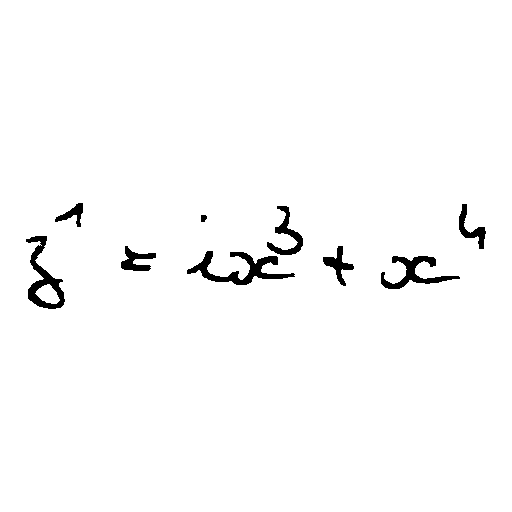 z^1 = ix^3 + x^4